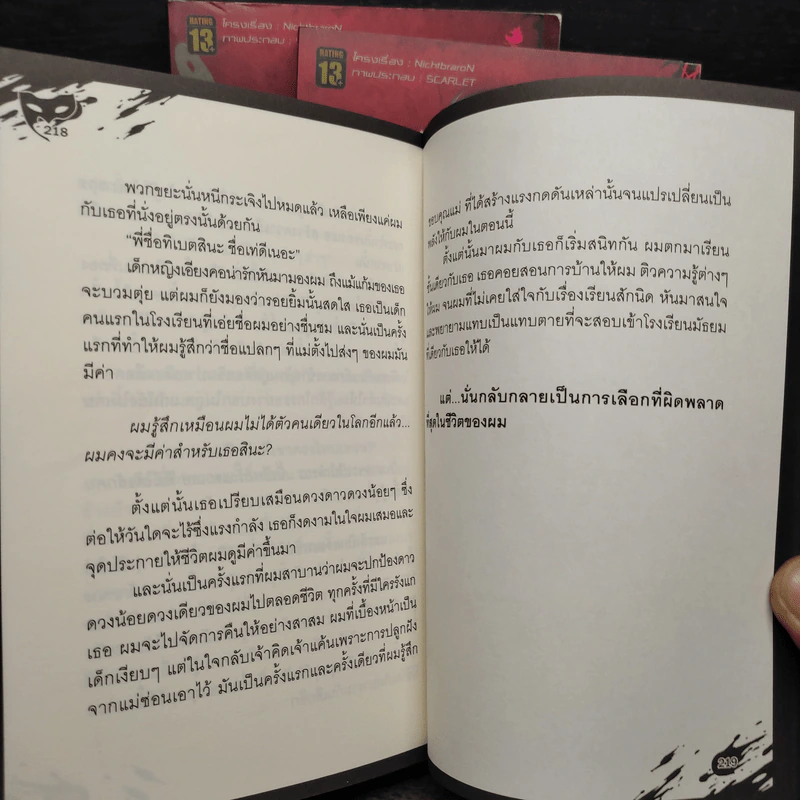 RATING
13+
โครงเรื่อง : NichtbraroN
ภาพประกอบ :
RATING
13+
โครงเรื่อง : NichtbraroN
ภาพประกอบ : SCARLET
218
พวกขยะนั่นหนีกระเจิงไปหมดแล้ว เหลือเพียงแค่ผม
กับเธอที่นั่งอยู่ตรงนั้นด้วยกัน
“พี่ชื่อทิเบตสินะ ชื่อเท่ดีเนอะ”
เด็กหญิงเอียงคอน่ารักหันมามองผม ถึงแม้แก้มของเธอ
จะบวมตุ่ย แต่ผมก็ยังมองว่ารอยยิ้มนั้นสดใส เธอเป็นเด็ก
คนแรกในโรงเรียนที่เอ่ยชื่อผมอย่างชื่นชม และนั่นเป็นครั้ง
แรกที่ทำให้ผมรู้สึกว่าชื่อแปลกๆ ที่แม่ตั้งไปส่งๆ ของผมมัน
มีค่า
ผมรู้สึกเหมือนผมไม่ได้ตัวคนเดียวในโลกอีกแล้ว...
ผมคงจะมีค่าสำหรับเธอสินะ?
ตั้งแต่นั้นเธอเปรียบเสมือนดวงดาวดวงน้อยๆ ซึ่ง
ต่อให้วันใดจะไร้ซึ่งแรงกำลัง เธอก็งดงามในใจผมเสมอและ
จุดประกายให้ชีวิตผมดูมีค่าขึ้นมา
และนั่นเป็นครั้งแรกที่ผมสาบานว่าผมจะปกป้องดาว
ดวงน้อยดวงเดียวของผมไปตลอดชีวิต ทุกครั้งที่มีใครรังแก
เธอ ผมจะไปจัดการคืนให้อย่างสาสม ผมที่เบื้องหน้าเป็น
เด็กเงียบๆ แต่ในใจกลับเจ้าคิดเจ้าแค้นเพราะการปลูกฝัง
จากแม่ซ่อนเอาไว้ มันเป็นครั้งแรกและครั้งเดียวที่ผมรู้สึก
ขอบคุณแม่ ที่ได้สร้างแรงกดดันเหล่านั้นจนแปรเปลี่ยนเป็น
พลังให้กับผมในตอนนี้
ตั้งแต่นั้นมาผมกับเธอก็เริ่มสนิทกัน ผมตกมาเรียน
ชั้นเดียวกับเธอ เธอคอยสอนการบ้านให้ผม ติวความรู้ต่างๆ
ให้ผม จนผมที่ไม่เคยใส่ใจกับเรื่องเรียนสักนิด หันมาสนใจ
และพยายามแทบเป็นแทบตายที่จะสอบเข้าโรงเรียนมัธยม
ที่เดียวกับเธอให้ได้
แต่...นั่นกลับกลายเป็นการเลือกที่ผิดพลาด
ที่สุดในชีวิตของผม
219